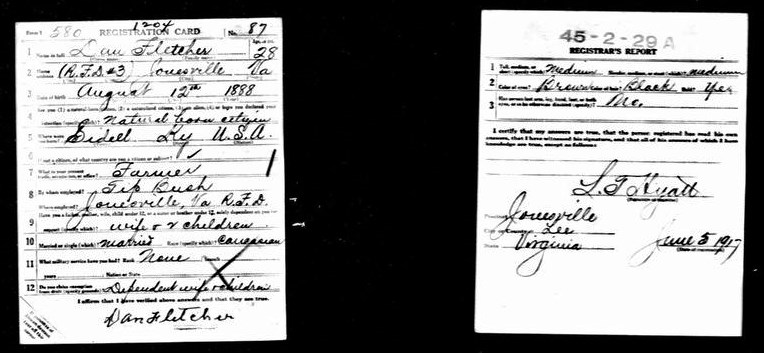 Form 1 580 1204 REGISTRATION CARD No. 87
1 Name in full Dan Fletcher Age, in yrs. 28
2 Home address (R.F.D #3) Jonesville Va
3 Date of birth August 12th 1888
4 Are you (1) a natural-born citizen, (2) a naturalized citizen, (3) an alien, (4) or have you declared your
intention (specify which)? Natural born citizen
5 Where were you born? Eidell Ky U.S.A.
6 If not a citizen, of what country are you a citizen or subject?
7 What is your present trade, occupation, or office? Farmer
8 By whom employed? Tip Bush
Where employed? Jonesville, Va R.F.D.
9 Have you a father, mother, wife, child under 12, or a sister or brother under 12, solely dependent on you for
support (specify which)? wife & 2 children
10 Married or single (which)? married Race (specify which)? Caucasian
11 What military service have you had? Rank None branch
years Nation or State
12 Do you claim exemption from draft (specify grounds)? Dependent wife & children
I affirm that I have verified above answers and that they are true.
Dan Fletcher
45-2-29 A
REGISTRAR'S REPORT
1 Tall, medium, or short (specify which)? Medium Slender, medium, or stout (which)? medium
2 Color of eyes? Brown Color of hair? Black Bald?
3 Has person lost arm, leg, hand, foot, or both eyes, or is he otherwise disabled (specify)? No.
I certify that my answers are true, that the person registered has read his own
answers, that I have witnessed his signature, and that all of his answers of which I have
knowledge are true, except as follows:
L. T. Hyatt
(Signature of registrar)
Precinct Jonesville
City or County Lee
State Virginia June 5 1917
(Date of registration)